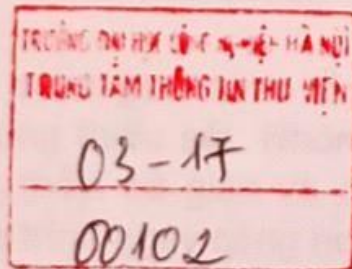 TRƯỜNG ĐẠI HỌC CÔNG NGHIỆP HÀ NỘI
TRUNG TÂM THÔNG TIN THƯ VIỆN
03-17
00102